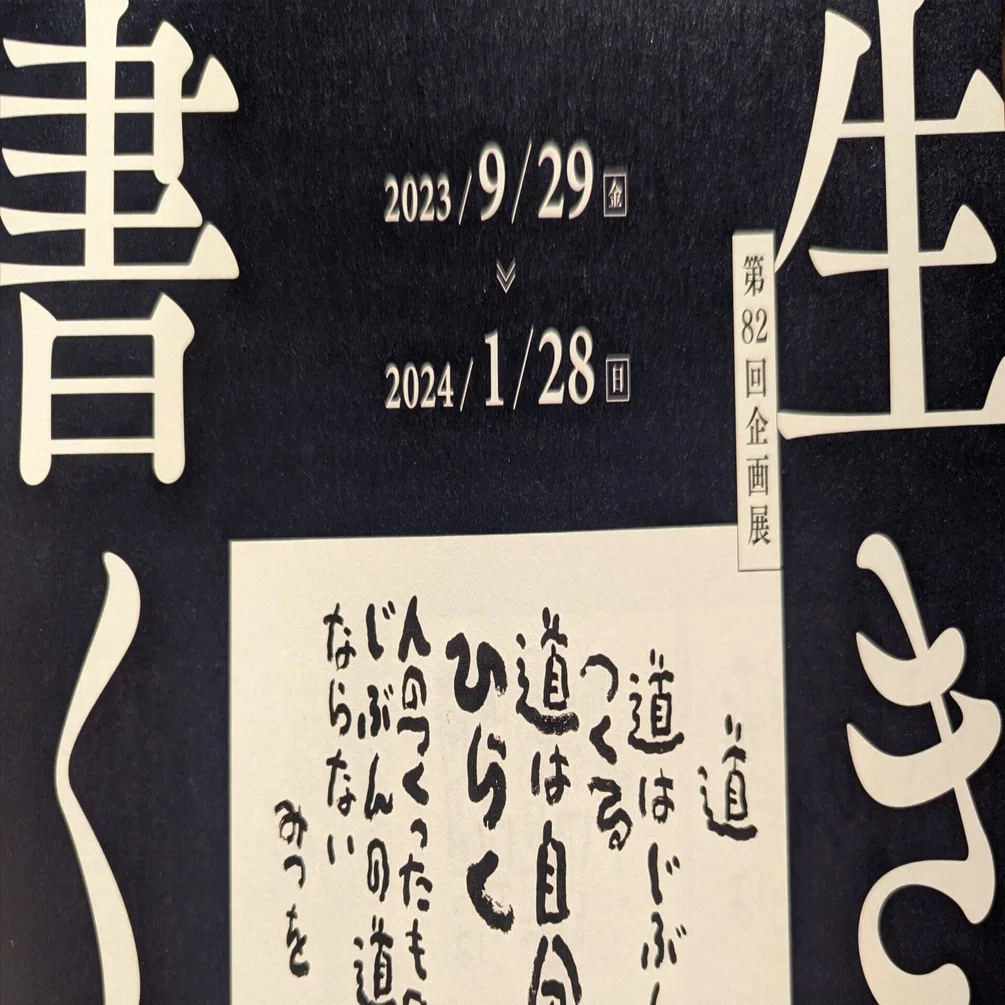 生き
書く
2023/9/29 金
2024/1/28 日
第82回企画展
道
道はじぶん
つくる
道は自分
ひらく
人のつくったもの
じぶんの道
ならない
みつを